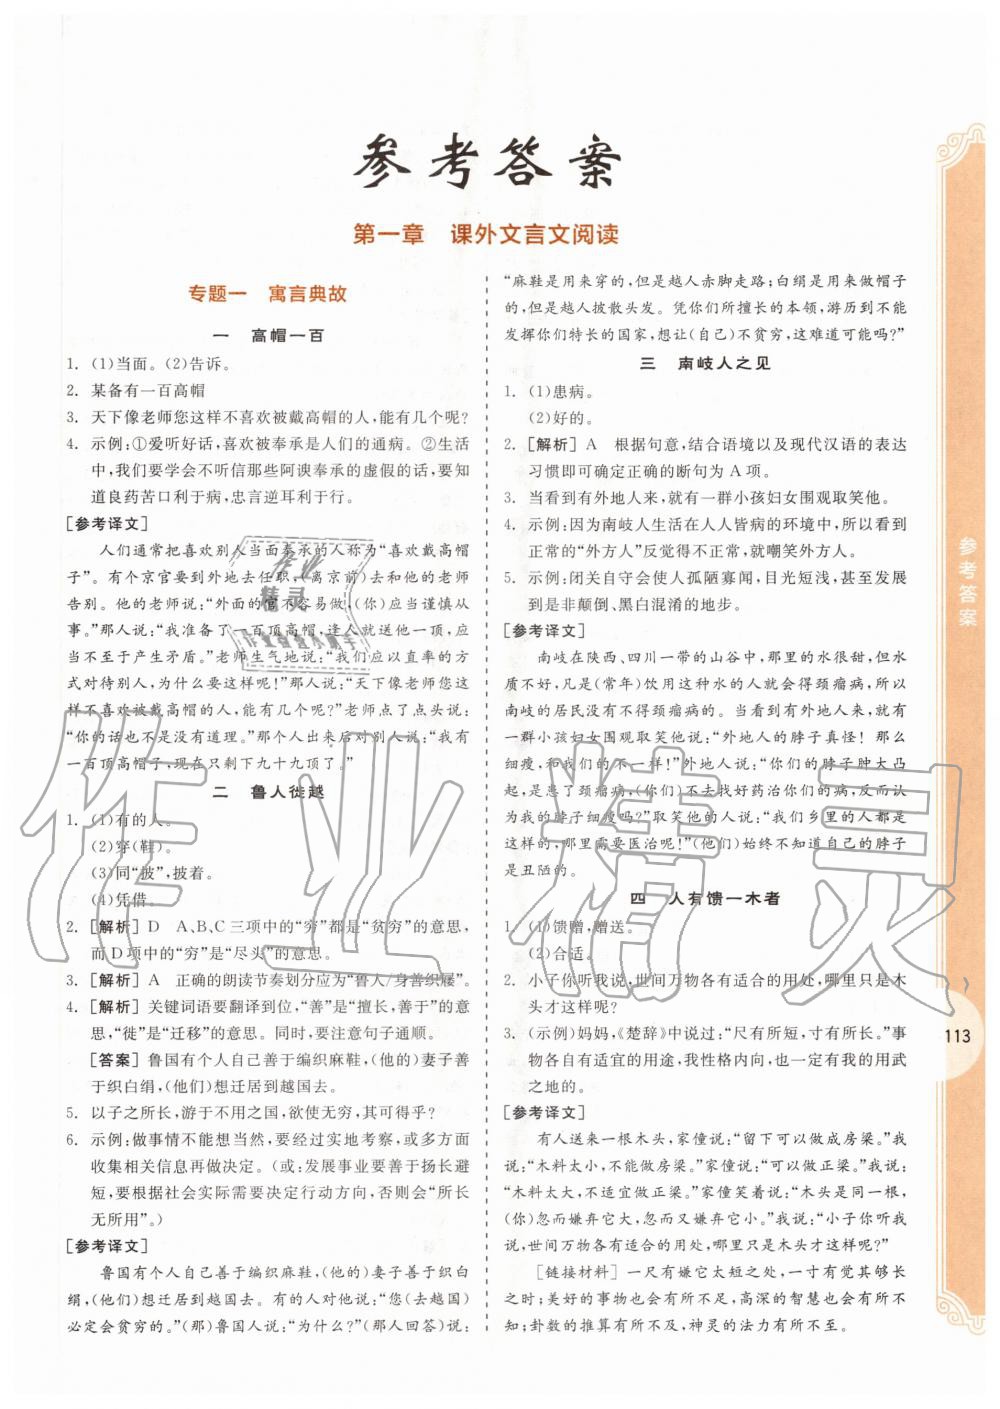 参考答案
第一章 课外文言文阅读
专题一 寓言典故
一 高帽一百
1. (1)当面。(2)告诉。
2. 某备有一百高帽
3. 天下像老师您这样不喜欢被戴高帽的人,能有几个呢?
4. 示例:①爱听好话,喜欢被奉承是人们的通病。②生活
中,我们要学会不听信那些阿谀奉承的虚假的话,要知
道良药苦口利于病,忠言逆耳利于行。
[参考译文]
人们通常把喜欢别人当面奉承的人称为“喜欢戴高帽
子”。有个京官要到外地去任职,(离京前)去和他的老师
告别。他的老师说:“外面的官不容易做,(你)应当谨慎从
事。”那人说:“我准备了一百顶高帽,逢人就送他一顶,应
当不至于产生矛盾。”老师生气地说:“我们应以直率的方
式对待别人,为什么要这样呢!”那人说:“天下像老师您这
样不喜欢被戴高帽的人,能有几个呢?”老师点了点头说:
“你的话也不是没有道理。”那个人出来后对别人说:“我有
一百顶高帽子,现在只剩下九十九顶了。”
二 鲁人徙越
1. (1)有的人。
(2)穿(鞋)。
(3)同“披”,披着。
(4)凭借。
2. [解析] D A、B、C三项中的“穷”都是“贫穷”的意思,
而D项中的“穷”是“尽头”的意思。
3. [解析] A 正确的朗读节奏划分应为“鲁人/身善织屦”。
4. [解析] 关键词语要翻译到位,“善”是“擅长,善于”的意
思,“徙”是“迁移”的意思。同时,要注意句子通顺。
[答案] 鲁国有个人自己善于编织麻鞋,(他的)妻子善
于织白绢,(他们)想迁居到越国去。
5. 以子之所长,游于不用之国,欲使无穷,其可得乎?
6. 示例:做事情不能想当然,要经过实地考察,或多方面
收集相关信息再做决定。(或:发展事业要善于扬长避
短,要根据社会实际需要决定行动方向,否则会“所长
无所用”。)
[参考译文]
鲁国有个人自己善于编织麻鞋,(他的)妻子善于织白
绢,(他们)想迁居到越国去。有的人对他说:“您(去越国)
必定会贫穷的。”(那)鲁国人说:“为什么?”(那人回答)说:
“麻鞋是用来穿的,但是越人赤脚走路;白绢是用来做帽子
的,但是越人披散头发。凭你们所擅长的本领,游历到不能
发挥你们特长的国家,想让(自己)不贫穷,这难道可能吗?”
三 南岐人之见
1. (1)患病。
(2)好的。
2. [解析] A 根据句意,结合语境以及现代汉语的表达
习惯即可确定正确的断句为A项。
3. 当看到有外地人来,就有一群小孩妇女围观取笑他。
4. 示例:因为南岐人生活在人人皆病的环境中,所以看到
正常的“外方人”反觉得不正常,就嘲笑外方人。
5. 示例:闭关自守会使人孤陋寡闻,目光短浅,甚至发展
到是非颠倒、黑白混淆的地步。
[参考译文]
南岐在陕西、四川一带的山谷中,那里的水很甜,但水
质不好,凡是(常年)饮用这种水的人就会得颈瘤病,所以
南岐的居民没有不得颈瘤病的。当看到有外地人来,就有
一群小孩妇女围观取笑他说:“外地人的脖子真怪!那么
细瘦,和我们的不一样!”外地人说:“你们的脖子肿大凸
起,是患了颈瘤病,(你们)不去找好药治你们的病,反而认
为我的脖子细瘦吗?”取笑他的人说:“我们乡里的人都
这样的,哪里需要医治呢!”(他们)始终不知道自己的脖子
是丑陋的。
四 人有馈一木者
1. (1)馈赠,赠送。
(2)合适。
2. 小子你听我说,世间万物各有适合的用处,哪里只是木
头才这样呢?
3. (示例)妈妈,《楚辞》中说过:“尺有所短,寸有所长。”事
物各自有适宜的用途,我性格内向,也一定有我的用武
之地的。
[参考译文]
有人送来一根木头,家僮说:“留下可以做成房梁。”我
说:“木料太小,不能做房梁。”家僮说:“可以做正梁。”我说:
“木料太大,不适宜做正梁。”家僮笑着说:“木头是同一根,
(你)忽而嫌弃它大,忽而又嫌弃它小。”我说:“小子你听我
说,世间万物各有适合的用处,哪里只是木头才这样呢?”
[链接材料] 一尺有嫌它太短之处,一寸有觉其够长
之时;美好的事物也会有所不足,高深的智慧也会有所不
知;卦数的推算有所不及,神灵的法力有所不至。
参考答案
113
作业精灵
作业
精灵
作业检查小助手